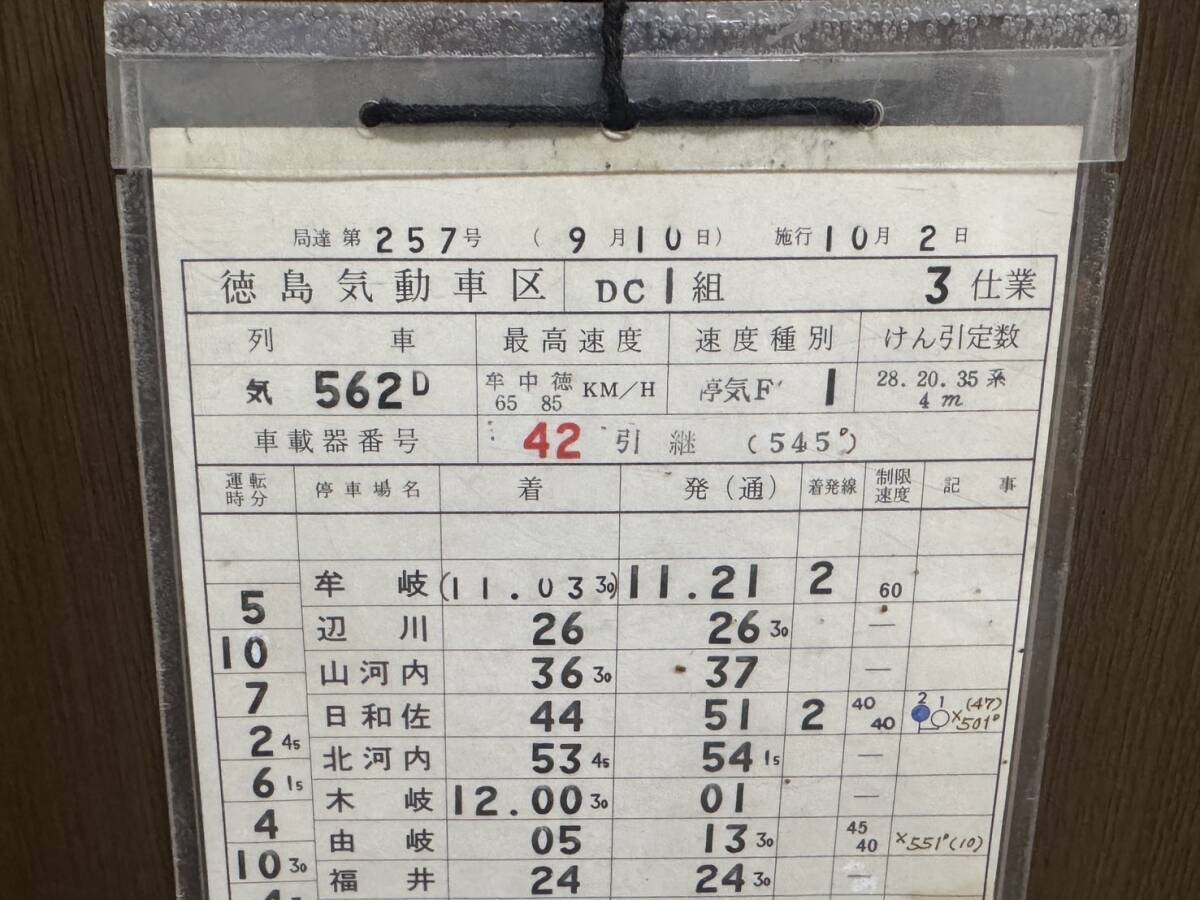 局達第257号 (9月10日) 施行10月2日
徳島気動車区 DC1組 3仕業
列車 最高速度 速度種別 けん引定数
気562D 牟中徳 65 85 KM/H 停気F 1 28.20.35系 4m
車載器番号 42引継 (545D)
運転時分 停車場名 着 発(通) 着発線 制限速度 記事
牟岐 (11.03 30) 11.21 2 60
5
辺川 26 26 30 —
10
山河内 36 30 37 —
7
日和佐 44 51 2 40 40 2 1 ×501D (47)
2 45
北河内 53 45 54 15 —
6 15
木岐 12.00 30 01 —
4
由岐 05 13 30 45 40 ×551D(10)
10 30
福井 24 24 30 —